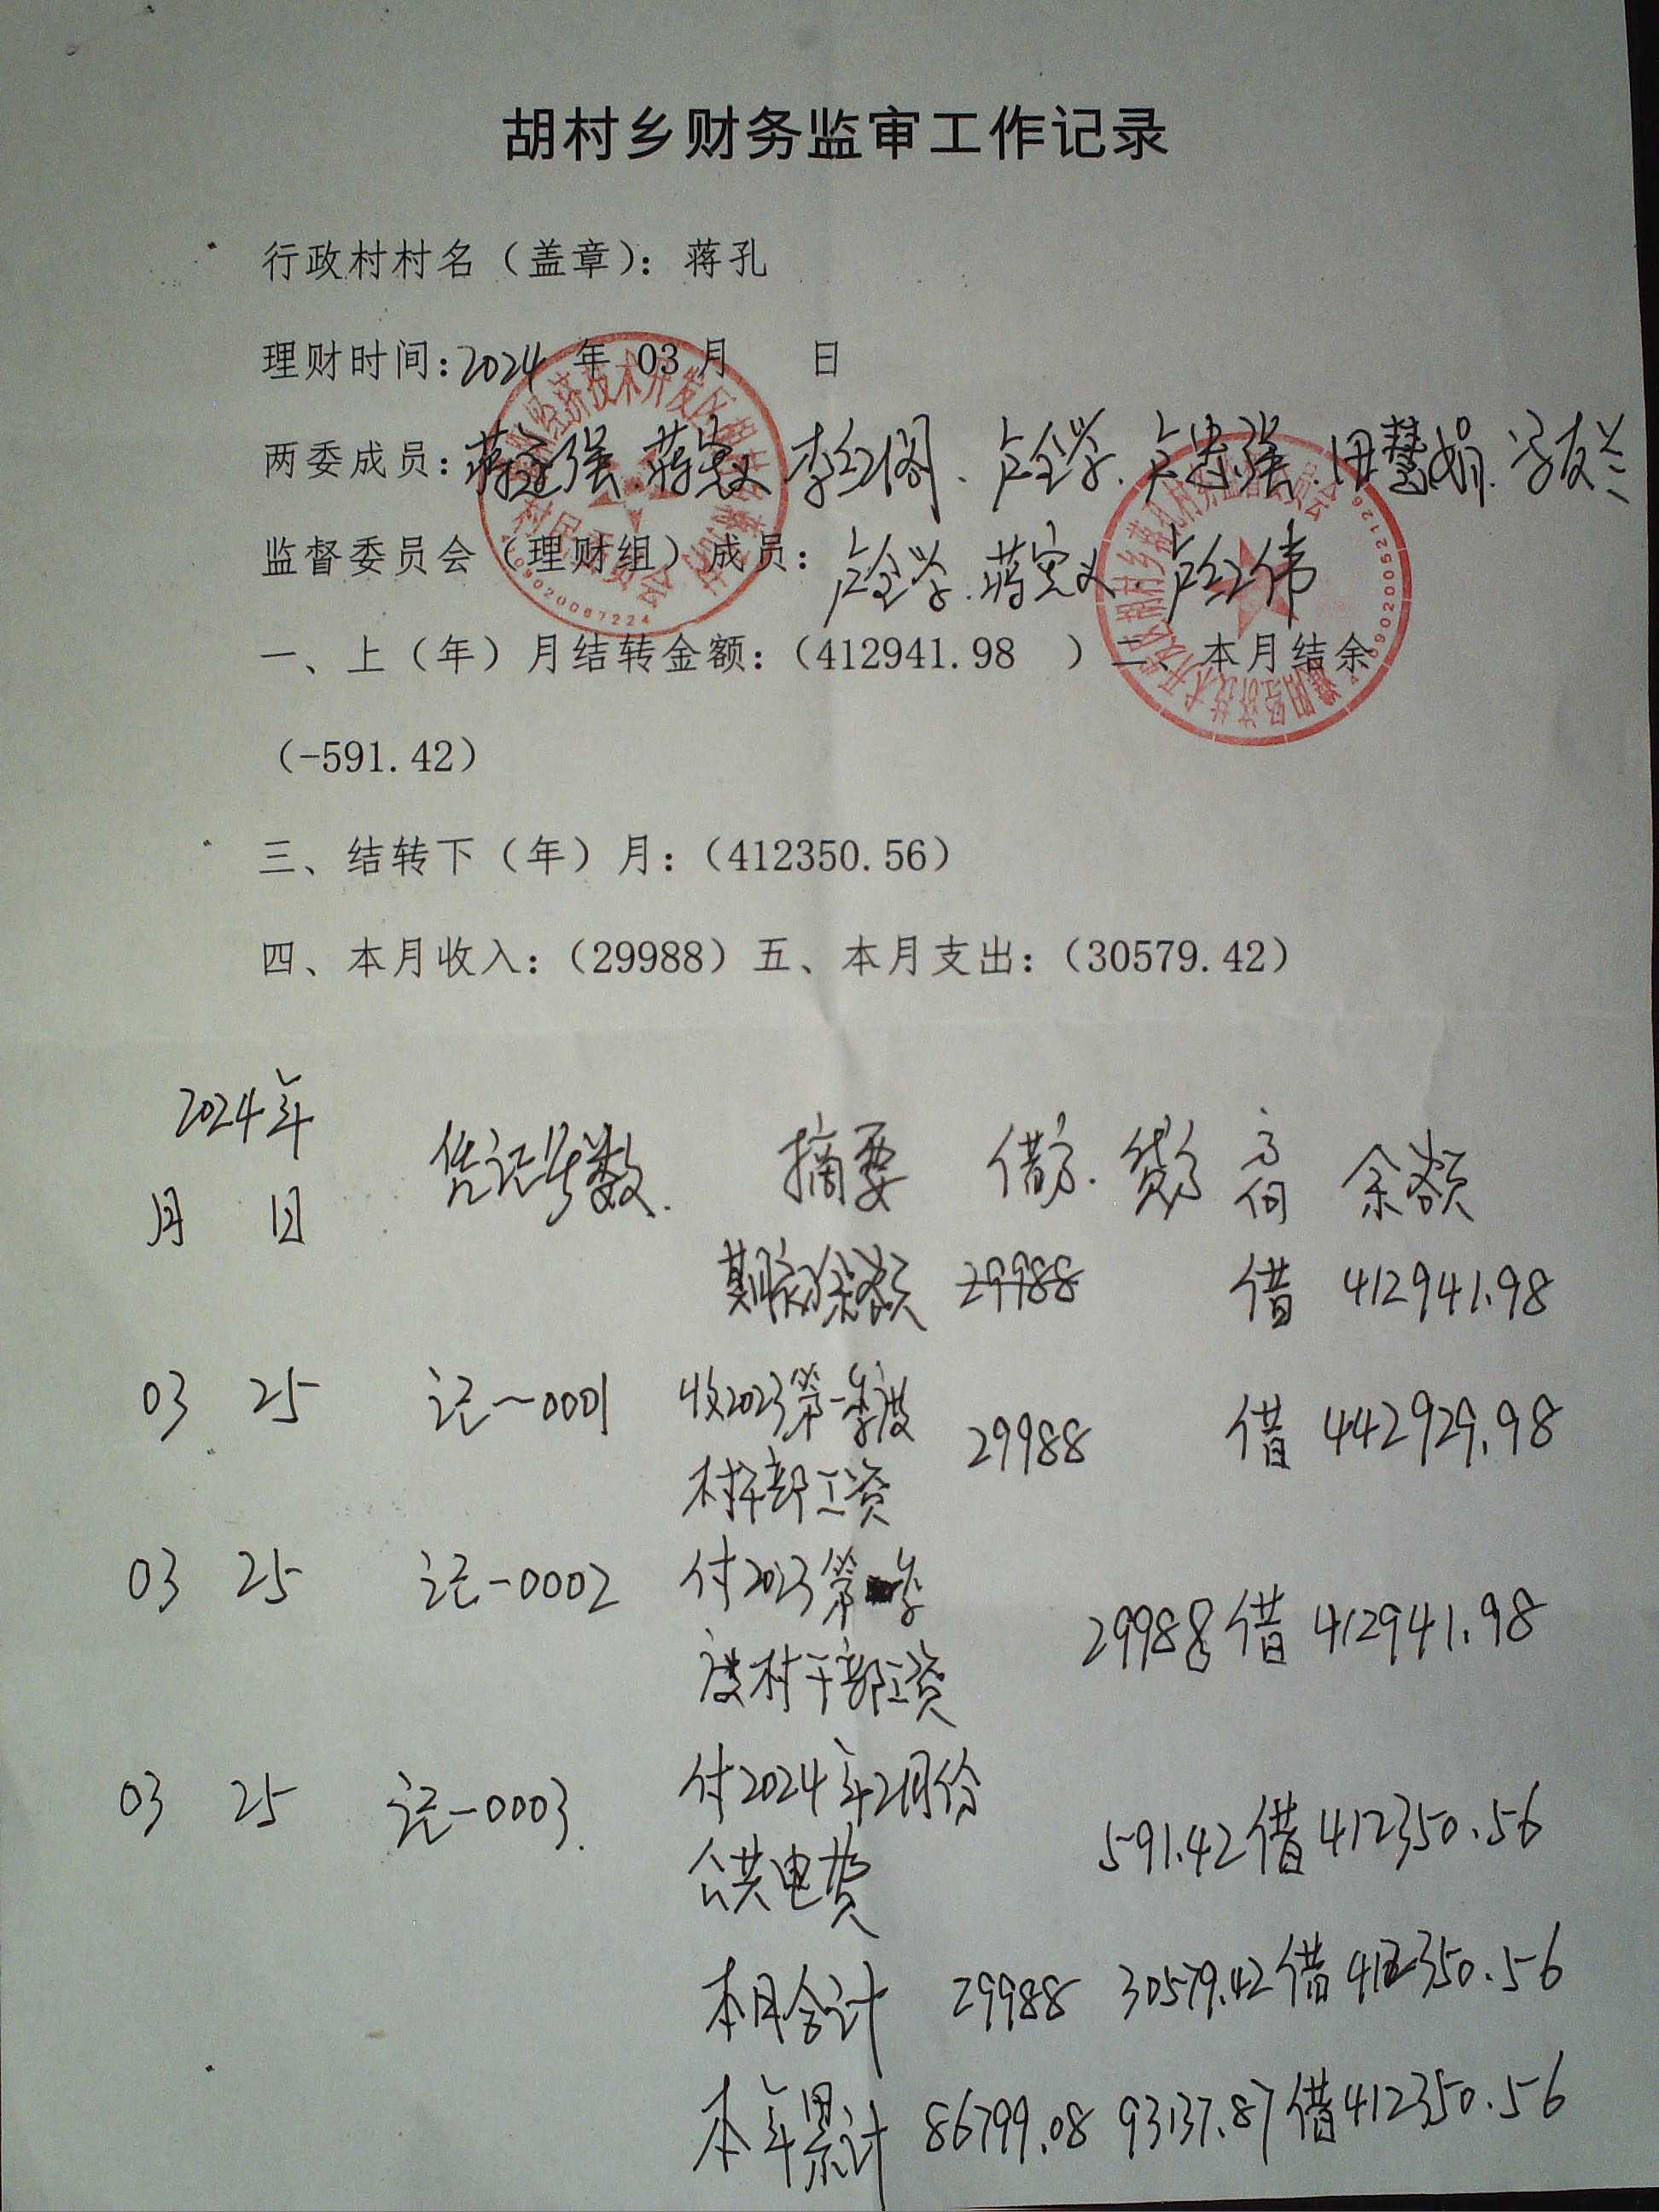 胡村乡财务监审工作记录
行政村村名（盖章）：蒋孔
理财时间：2024 年 03 月 日
两委成员：李红阁、卢全学、卢忠强、田慧娟、
监督委员会（理财组）成员：卢全学、蒋宪义、卢红伟
一、上（年）月结转金额：（412941.98 ）二、本月结余
（-591.42）
三、结转下（年）月：（412350.56）
四、本月收入：（29988）五、本月支出：（30579.42）
2024年
月 日 凭证号数 摘要 借方 贷方 方向 余额
期初余额 29988 借 412941.98
03 25 记-0001 收2023第一季度 29988 借 442929.98
村干部工资
03 25 记-0002 付2023第一季 29988 借 412941.98
度村干部工资
03 25 记-0003 付2024年2月份 591.42 借 412350.56
公共电费
本月合计 29988 30579.42 借 412350.56
本年累计 86799.08 93137.87 借 412350.56